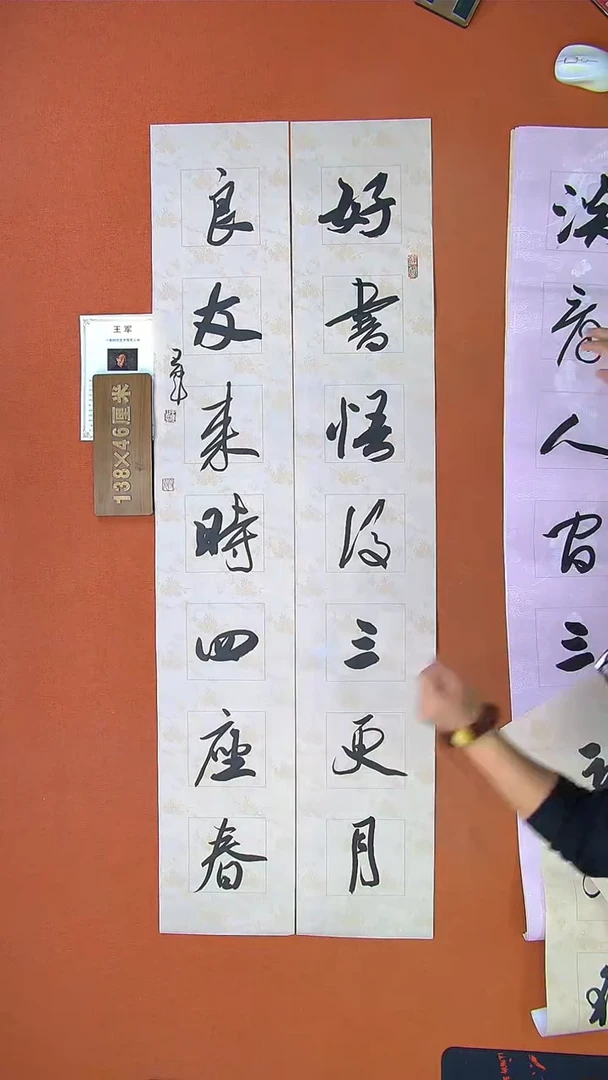 好書悟後三更月
良友来時四座春
王军
138×46厘米
淡
人
三